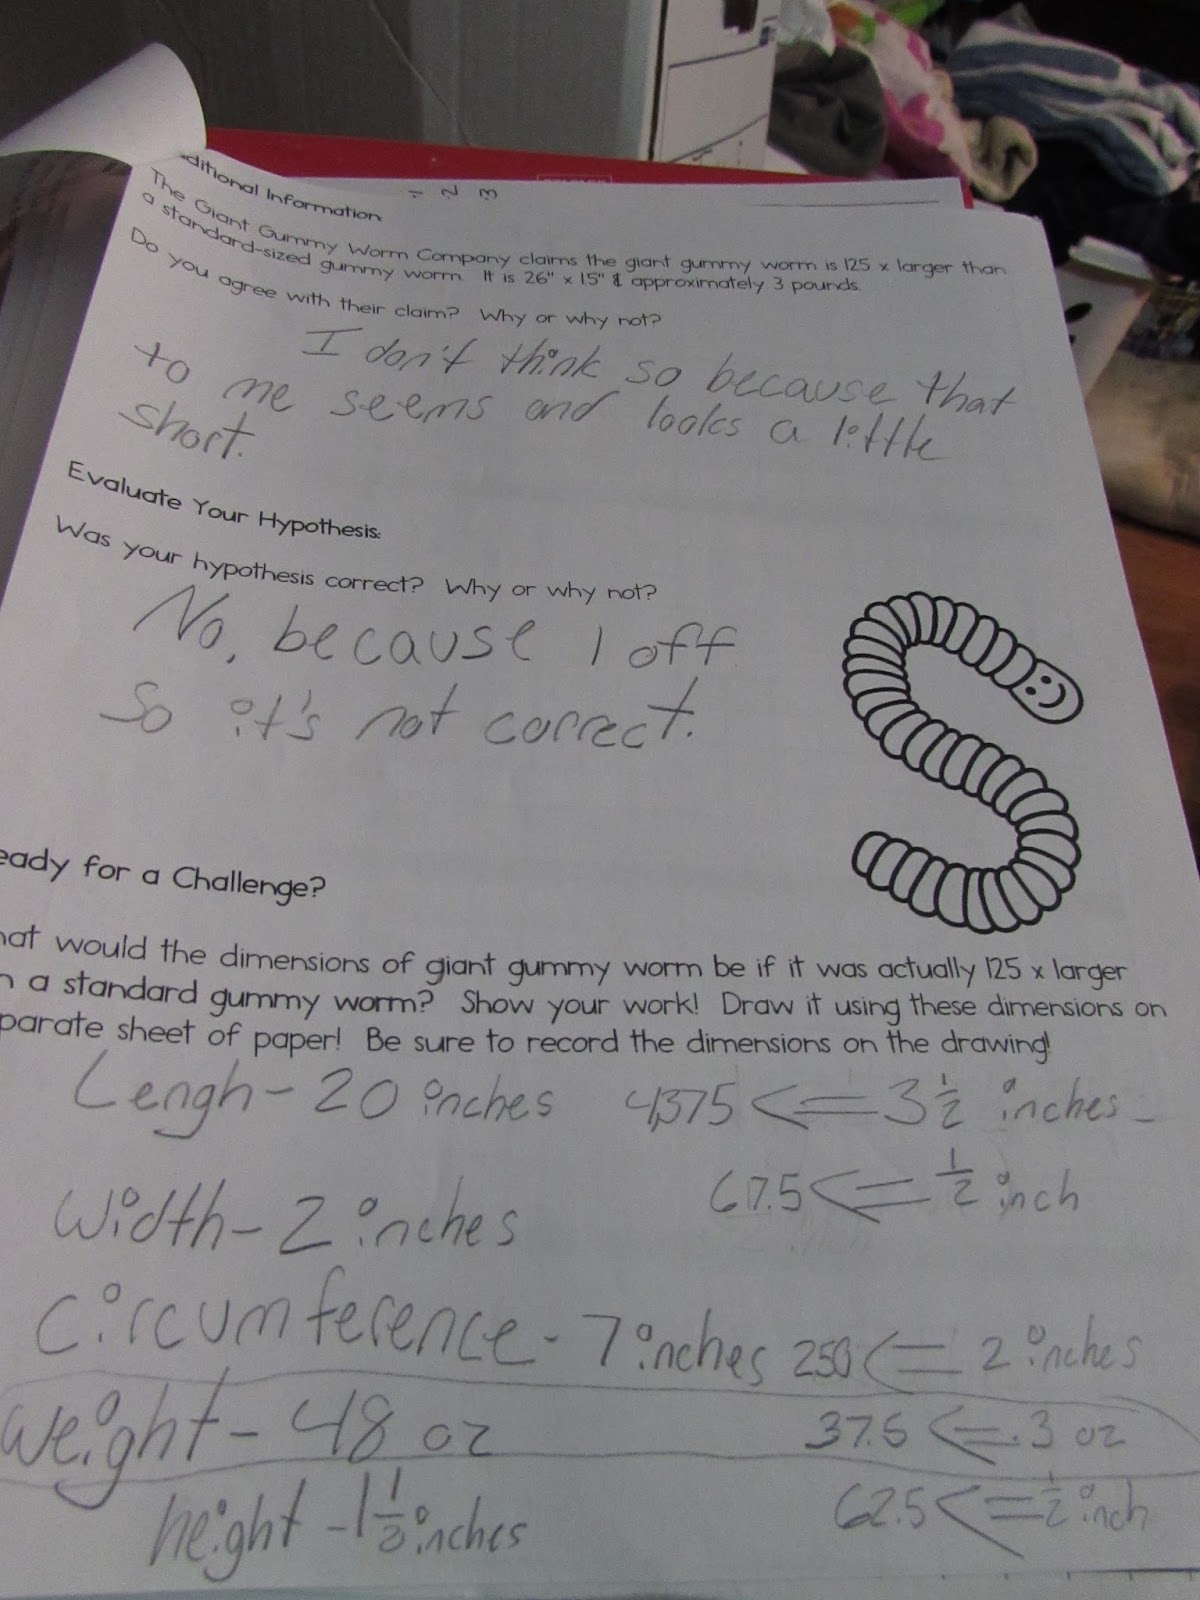 ditional Information
1 2 3
The Giant Gummy Worm Company claims the giant gummy worm is 125 x larger than
a standard-sized gummy worm. It is 26" x 1.5" & approximately 3 pounds.
Do you agree with their claim? Why or why not?
I don't think so because that
to me seems and looks a little
short.
Evaluate Your Hypothesis:
Was your hypothesis correct? Why or why not?
No, because I off
So it's not correct.
eady for a Challenge?
hat would the dimensions of giant gummy worm be if it was actually 125 x larger
n a standard gummy worm? Show your work! Draw it using these dimensions on
parate sheet of paper! Be sure to record the dimensions on the drawing!
Lengh - 20 inches 4,375 <= 3 1/2 inches
Width - 2 inches 67.5 <= 1/2 inch
Circumference - 7 inches 250 <= 2 inches
weight - 48 oz 37.5 <= .3 oz
height - 1 1/3 inches 62.5 <= 1/2 inch